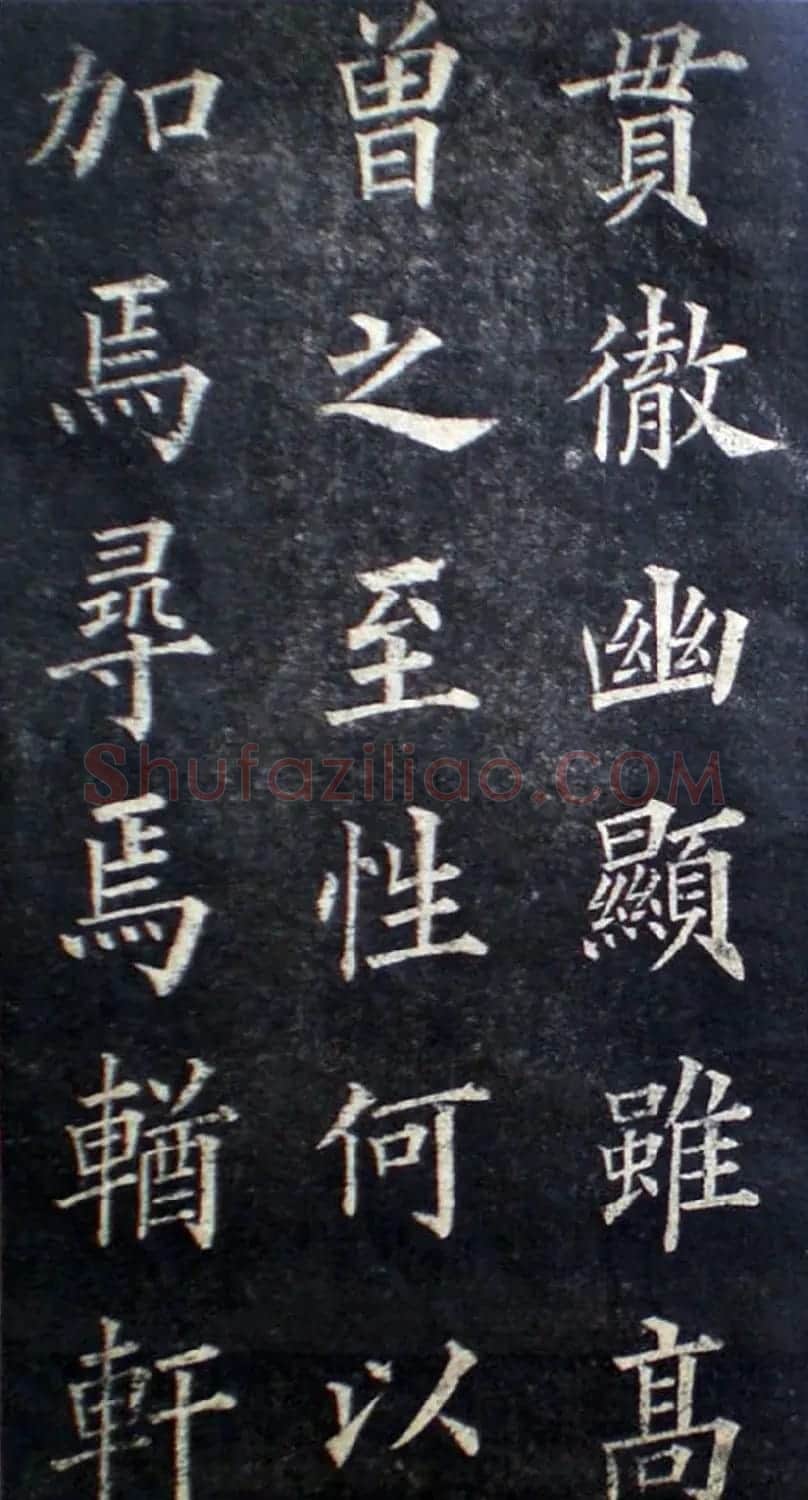 貫徹幽顯雖高
曽之至性何以
加焉尋焉輶軒
Shufaziliao.COM